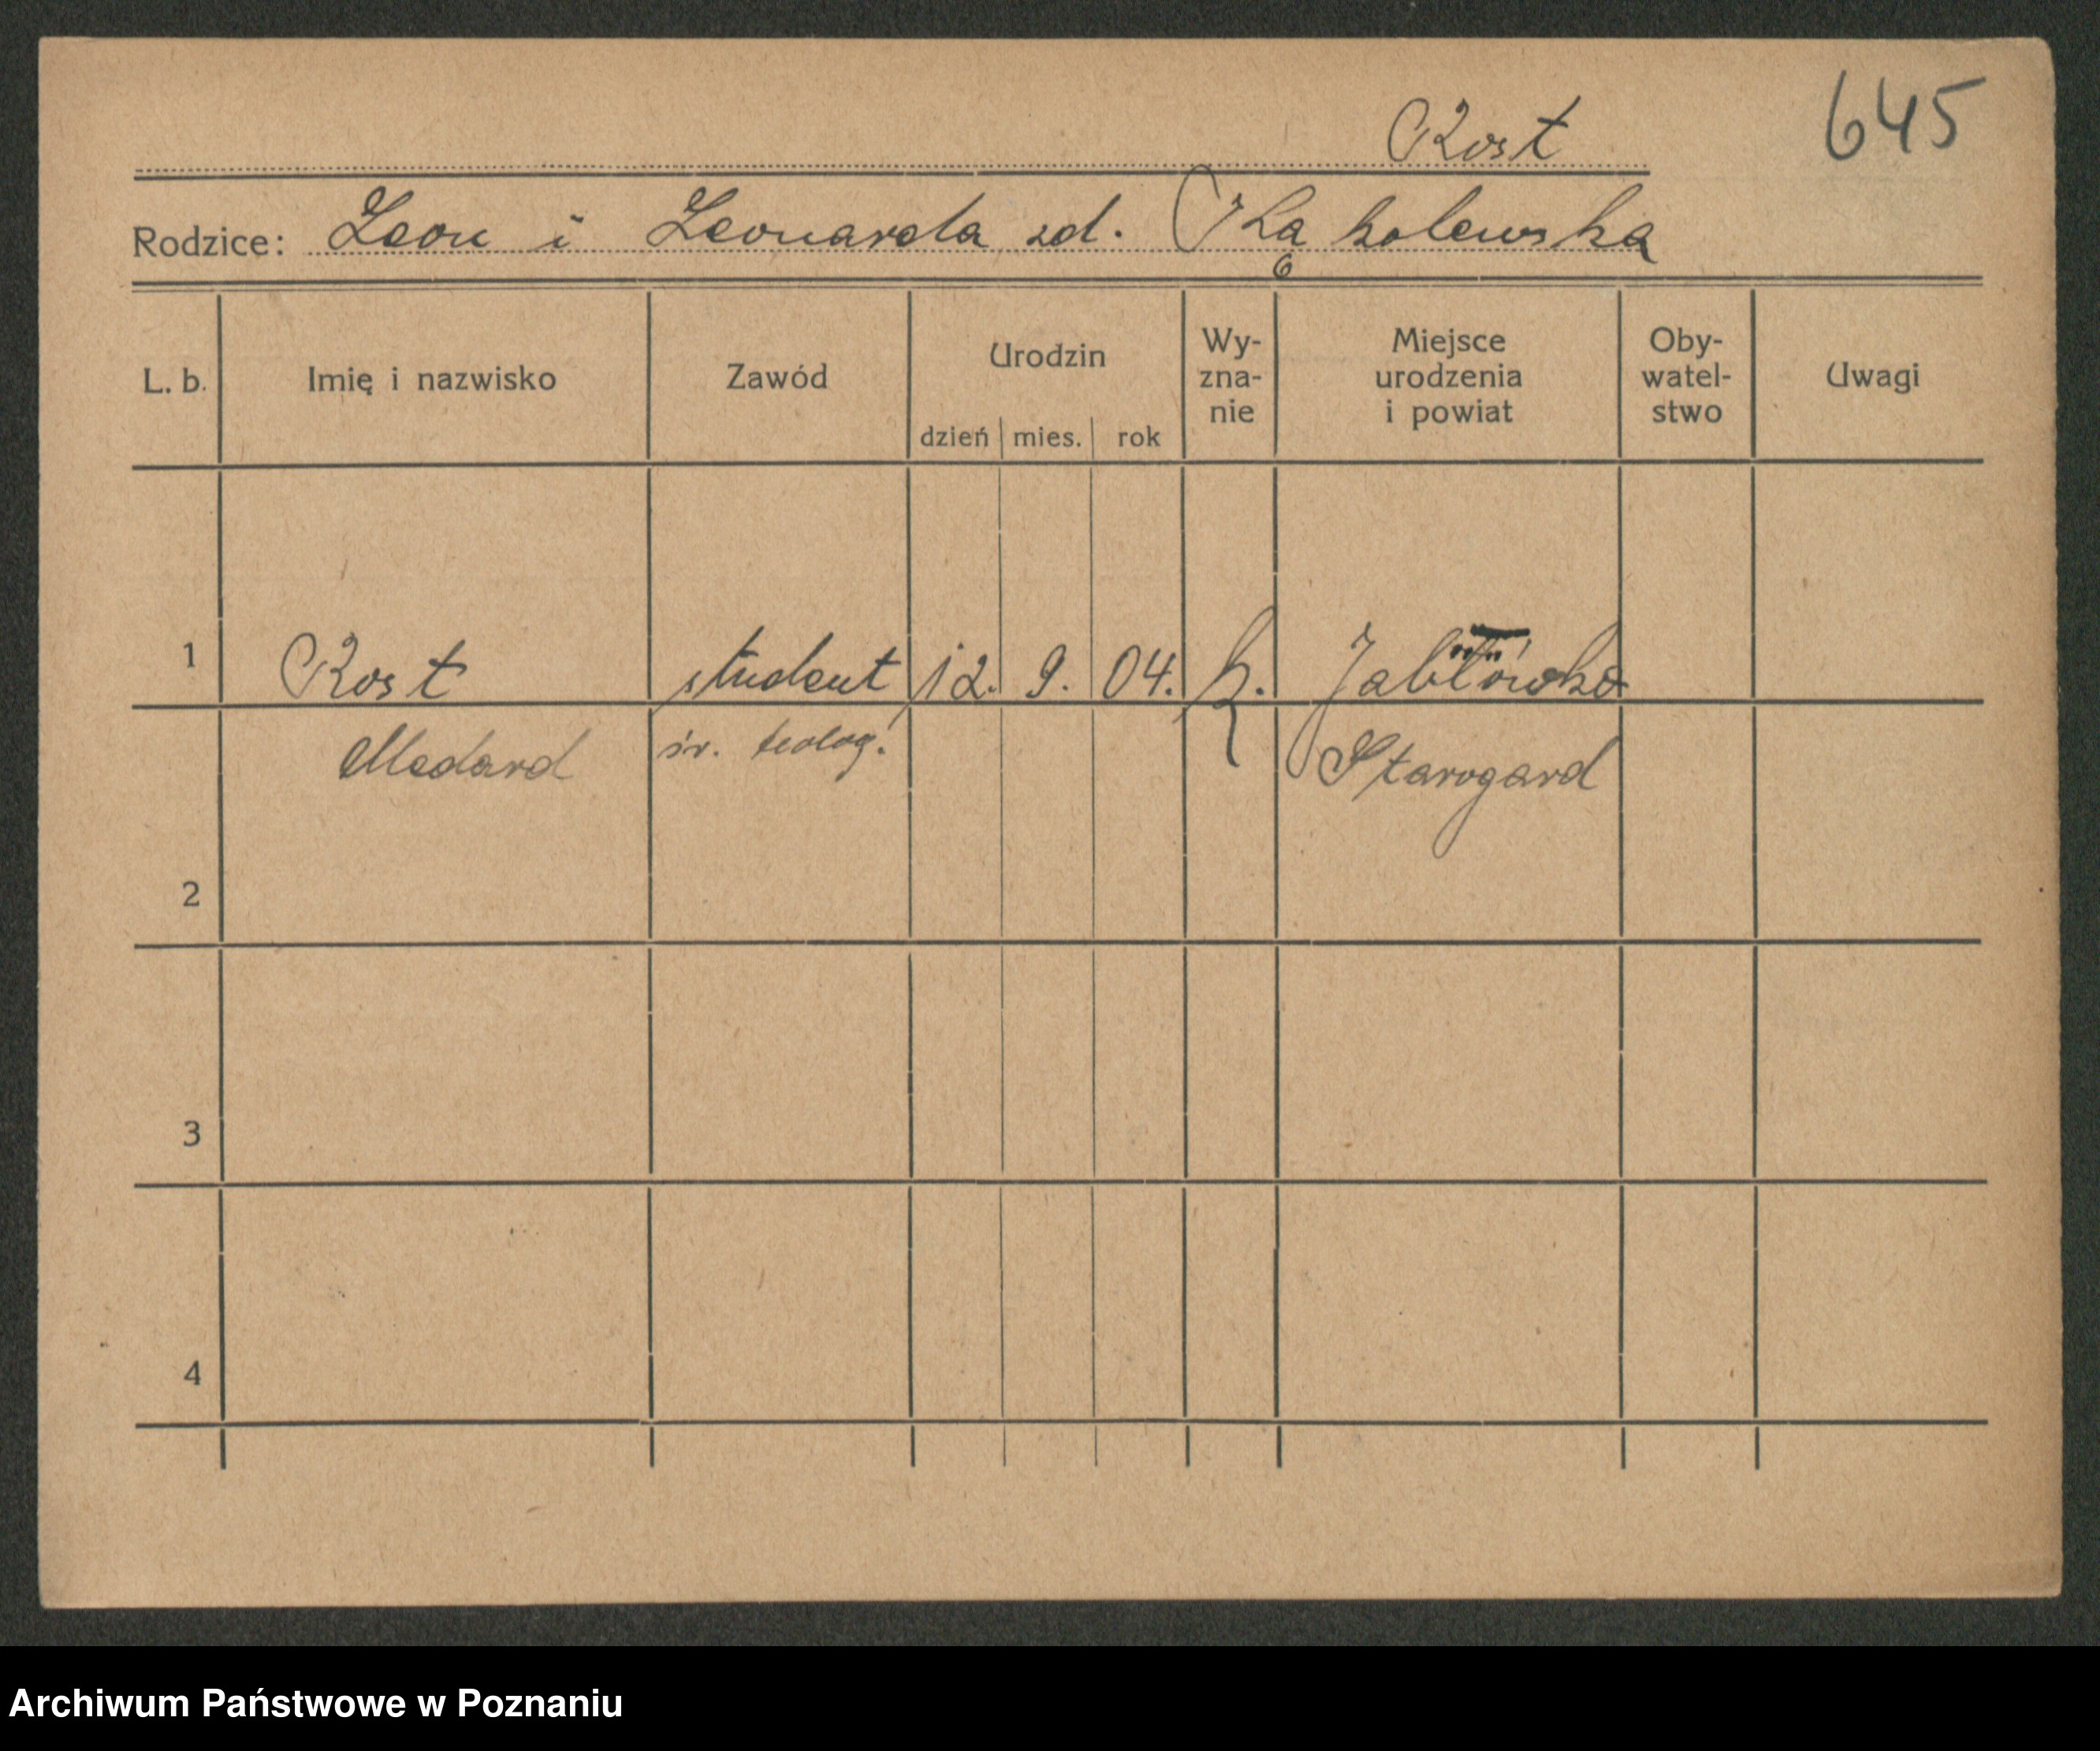 Rost
645
Rodzice: Leon i Leonarda zd. Kąkolewska
L. b. Imię i nazwisko Zawód Urodzin Wy-zna-nie Miejsce urodzenia i powiat Oby-watel-stwo Uwagi
dzień mies. rok
1 Rost student 12. 9. 04. k. Jabłówko
Medard św. teolog. Starogard
2
3
4
Archiwum Państwowe w Poznaniu